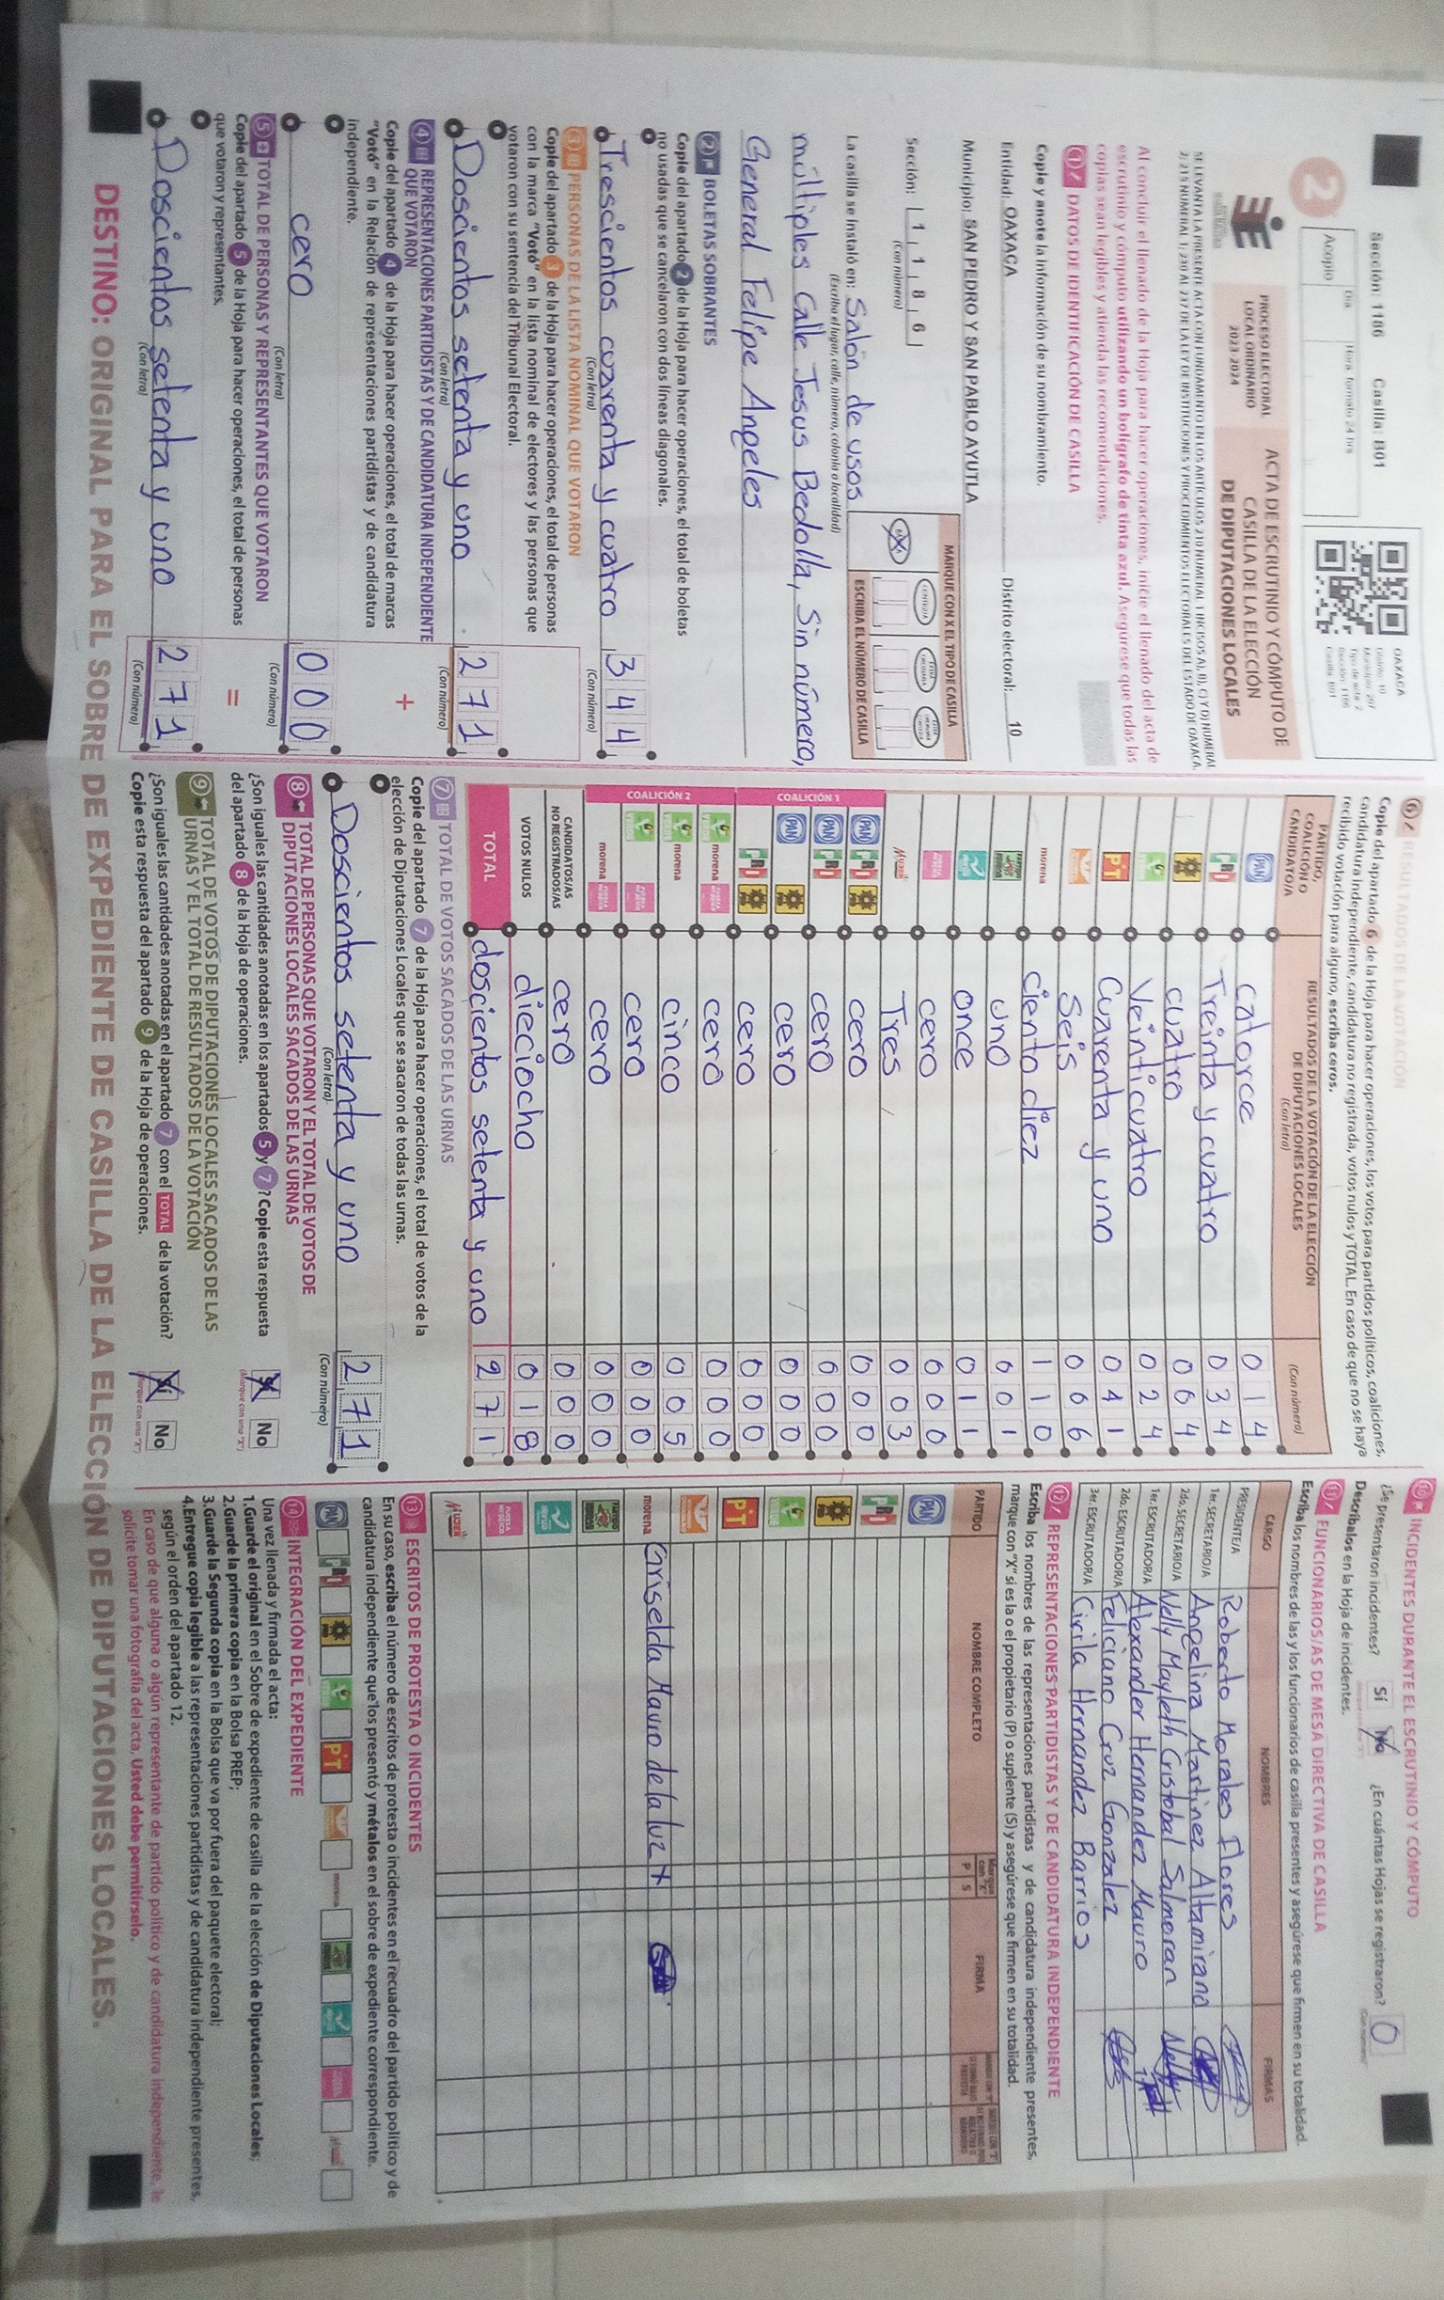 Sección: 1186 Casilla: B01
Acopio
Día
Hora, formato 24 hrs
OAXACA
Distrito: 10
Municipio: 207
Tipo de acta: 2
Sección: 1186
Casilla: B01
2
PROCESO ELECTORAL
LOCAL ORDINARIO
2023-2024
ACTA DE ESCRUTINIO Y CÓMPUTO DE
CASILLA DE LA ELECCIÓN
DE DIPUTACIONES LOCALES
SE LEVANTA LA PRESENTE ACTA CON FUNDAMENTO EN LOS ARTÍCULOS 210 NUMERAL 1 INCISOS A), B), C) Y D) NUMERAL
2; 215 NUMERAL 1; 230 AL 237 DE LA LEY DE INSTITUCIONES Y PROCEDIMIENTOS ELECTORALES DEL ESTADO DE OAXACA.
Al concluir el llenado de la Hoja para hacer operaciones, inicie el llenado del acta de
escrutinio y cómputo utilizando un bolígrafo de tinta azul. Asegúrese que todas las
copias sean legibles y atienda las recomendaciones.
1 DATOS DE IDENTIFICACIÓN DE CASILLA
Copie y anote la información de su nombramiento.
Entidad: OAXACA Distrito electoral: 10
Municipio: SAN PEDRO Y SAN PABLO AYUTLA
Sección: 1 1 8 6
(Con número)
MARQUE CON X EL TIPO DE CASILLA
ESCRIBA EL NÚMERO DE CASILLA
La casilla se instaló en: Salon de usos
(Escriba el lugar, calle, número, colonia o localidad)
multiples Calle Jesus Bedolla, Sin número,
General Felipe Angeles
2 BOLETAS SOBRANTES
Copie del apartado 2 de la Hoja para hacer operaciones, el total de boletas
no usadas que se cancelaron con dos líneas diagonales.
Trescientos cuarenta y cuatro 3 4 4
(Con letra) (Con número)
3 PERSONAS DE LA LISTA NOMINAL QUE VOTARON
Copie del apartado 3 de la Hoja para hacer operaciones, el total de personas
con la marca "Votó" en la lista nominal de electores y las personas que
votaron con su sentencia del Tribunal Electoral.
Doscientos setenta y uno 2 7 1
(Con letra) (Con número)
4 REPRESENTACIONES PARTIDISTAS Y DE CANDIDATURA INDEPENDIENTE
QUE VOTARON
Copie del apartado 4 de la Hoja para hacer operaciones, el total de marcas
"Votó" en la Relación de representaciones partidistas y de candidatura
independiente.
+
cero 0 0 0
(Con letra) (Con número)
5 TOTAL DE PERSONAS Y REPRESENTANTES QUE VOTARON
Copie del apartado 5 de la Hoja para hacer operaciones, el total de personas
que votaron y representantes.
=
Doscientos setenta y uno 2 7 1
(Con letra) (Con número)
6 RESULTADOS DE LA VOTACIÓN
Copie del apartado 6 de la Hoja para hacer operaciones, los votos para partidos políticos, coaliciones,
candidatura independiente, candidatura no registrada, votos nulos y TOTAL. En caso de que no se haya
recibido votación para alguno, escriba ceros.
PARTIDO,
COALICIÓN O
CANDIDATO/A
RESULTADOS DE LA VOTACIÓN DE LA ELECCIÓN
DE DIPUTACIONES LOCALES
(Con letra)
(Con número)
PAN catorce 0 1 4
PRD Treinta y cuatro 0 3 4
cuatro 0 0 4
Veinticuatro 0 2 4
PT Cuarenta y uno 0 4 1
Seis 0 0 6
morena Ciento diez 1 1 0
uno 0 0 1
once 0 1 1
cero 0 0 0
Tres 0 0 3
COALICIÓN 1
cero 0 0 0
cero 0 0 0
cero 0 0 0
cero 0 0 0
COALICIÓN 2
morena cero 0 0 0
morena cinco 0 0 5
cero 0 0 0
morena cero 0 0 0
CANDIDATOS/AS
NO REGISTRADOS/AS cero 0 0 0
VOTOS NULOS dieciocho 0 1 8
TOTAL doscientos setenta y uno 2 7 1
7 TOTAL DE VOTOS SACADOS DE LAS URNAS
Copie del apartado 7 de la Hoja para hacer operaciones, el total de votos de la
elección de Diputaciones Locales que se sacaron de todas las urnas.
Doscientos setenta y uno 2 7 1
(Con letra) (Con número)
8 TOTAL DE PERSONAS QUE VOTARON Y EL TOTAL DE VOTOS DE
DIPUTACIONES LOCALES SACADOS DE LAS URNAS
¿Son iguales las cantidades anotadas en los apartados 5 y 7? Copie esta respuesta
del apartado 8 de la Hoja de operaciones.
Sí No
(Marque con una "X")
9 TOTAL DE VOTOS DE DIPUTACIONES LOCALES SACADOS DE LAS
URNAS Y EL TOTAL DE RESULTADOS DE LA VOTACIÓN
¿Son iguales las cantidades anotadas en el apartado 7 con el TOTAL de la votación?
Copie esta respuesta del apartado 9 de la Hoja de operaciones.
Sí No
(Marque con una "X")
10 INCIDENTES DURANTE EL ESCRUTINIO Y CÓMPUTO
¿Se presentaron incidentes? Sí No ¿En cuántas Hojas se registraron? 0
(Con número)
Descríbalos en la Hoja de incidentes.
11 FUNCIONARIOS/AS DE MESA DIRECTIVA DE CASILLA
Escriba los nombres de las y los funcionarios de casilla presentes y asegúrese que firmen en su totalidad.
CARGO NOMBRES FIRMAS
PRESIDENTE/A Roberto Morales Flores
1er. SECRETARIO/A Angelina Martinez Altamirano
2do. SECRETARIO/A Nelly Mayleth Cristobal Salmeran Nelly
1er. ESCRUTADOR/A Alexander Hernandez Mauro
2do. ESCRUTADOR/A Feliciano Cruz Gonzalez
3er. ESCRUTADOR/A Cirila Hernandez Barrios
12 REPRESENTACIONES PARTIDISTAS Y DE CANDIDATURA INDEPENDIENTE
Escriba los nombres de las representaciones partidistas y de candidatura independiente presentes,
marque con "X" si es la o el propietario (P) o suplente (S) y asegúrese que firmen en su totalidad.
PARTIDO NOMBRE COMPLETO Marque con "X" P S FIRMA
PAN
PRD
PT
morena Griselda Mauro de la luz X
13 ESCRITOS DE PROTESTA O INCIDENTES
En su caso, escriba el número de escritos de protesta o incidentes en el recuadro del partido político y de
candidatura independiente que los presentó y métalos en el sobre de expediente de casilla correspondiente.
PAN PRD PT morena
14 INTEGRACIÓN DEL EXPEDIENTE
Una vez llenada y firmada el acta:
1.Guarde el original en el Sobre de expediente de casilla de la elección de Diputaciones Locales;
2.Guarde la primera copia en la Bolsa PREP;
3.Guarde la Segunda copia en la Bolsa que va por fuera del paquete electoral;
4.Entregue copia legible a las representaciones partidistas y de candidatura independiente presentes,
según el orden del apartado 12.
En caso de que alguna o algún representante de partido político y de candidatura independiente, le
solicite tomar una fotografía del acta, Usted debe permitírselo.
DESTINO: ORIGINAL PARA EL SOBRE DE EXPEDIENTE DE CASILLA DE LA ELECCIÓN DE DIPUTACIONES LOCALES.